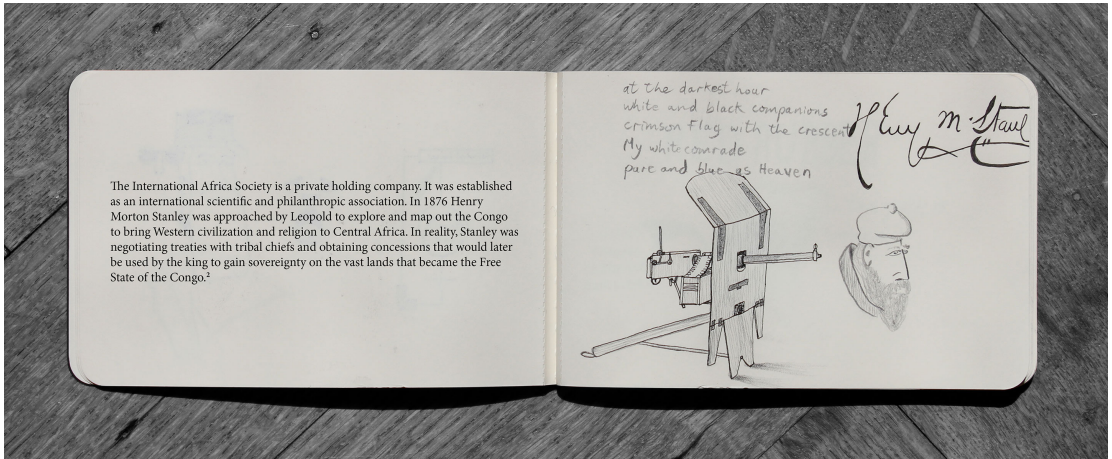 The International Africa Society is a private holding company. It was established
as an international scientific and philanthropic association. In 1876 Henry
Morton Stanley was approached by Leopold to explore and map out the Congo
to bring Western civilization and religion to Central Africa. In reality, Stanley was
negotiating treaties with tribal chiefs and obtaining concessions that would later
be used by the king to gain sovereignty on the vast lands that became the Free
State of the Congo.²
at the darkest hour
white and black companions
crimson flag with the crescent
My white comrade
pure and blue as Heaven
Henry M. Stanl